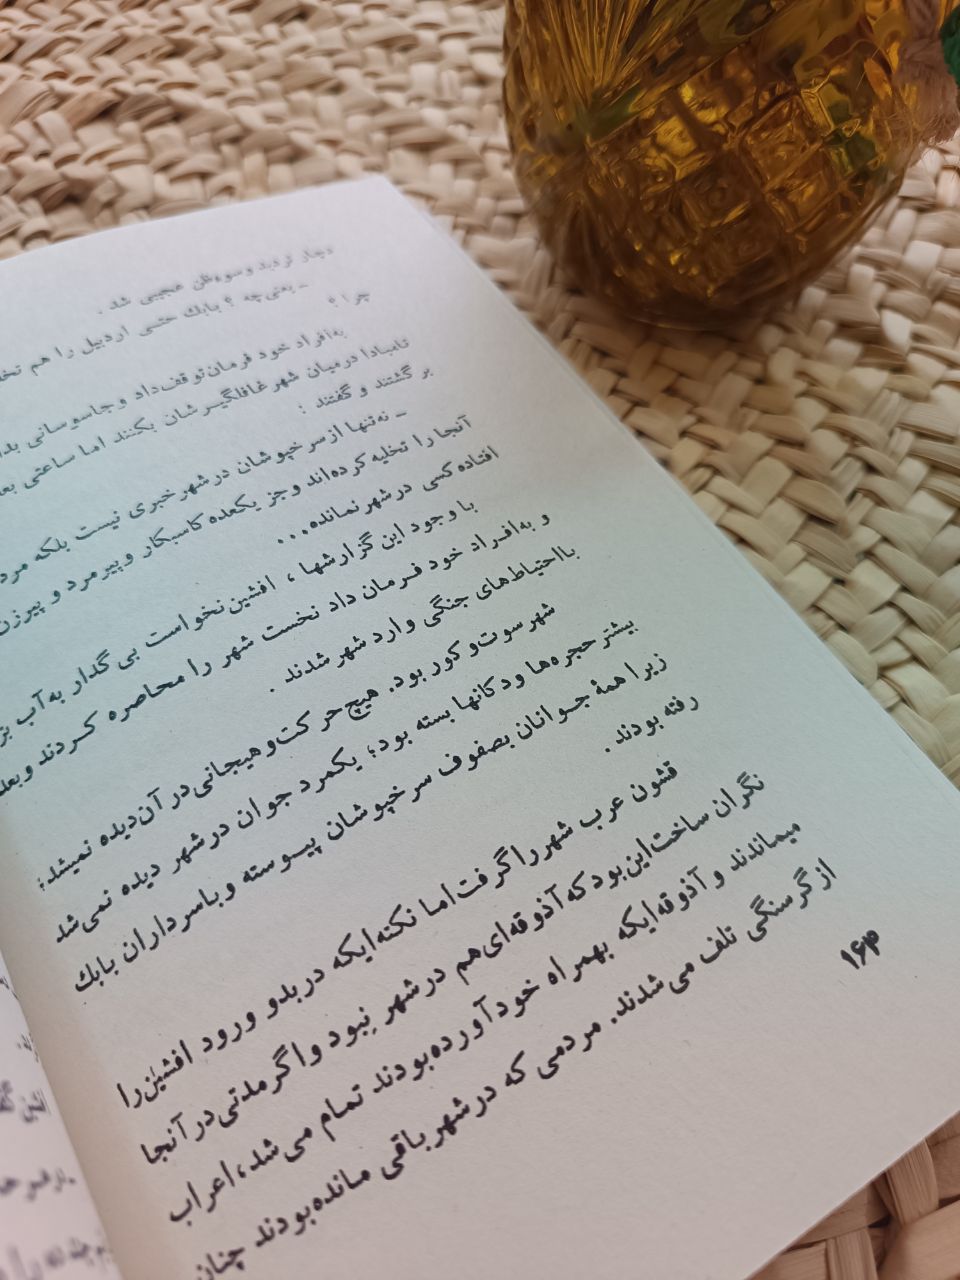 دچار تردید وسوءظن عجیبی شد .
ـ یعنی‌چه ؟ بابك حتی اردبیل را هم
چرا ؟
به‌افراد خود فرمان‌توقف‌داد وجاسوسانی
تامبادا درمیان شهر غافلگیرشان بکنند اما ساعتی
برگشتند و گفتند :
ـ نه‌تنها ازسرخپوشان درشهر خبری نیست بلکه
آنجا را تخلیه کرده‌اند وجز یکعده کاسبکار وپیرمرد و پیرزن
افتاده کسی درشهر نمانده...
با وجود این گزارشها ، افشین نخواست بی گدار به آب
و به‌افراد خود فرمان داد نخست شهر را محاصره کردند وبعد
بااحتیاط‌های جنگی وارد شهر شدند .
شهر سوت‌و کور بود. هیچ حرکت‌وهیجانی‌در آن‌دیده نمیشد؛
بیشتر حجره‌ها ودکانها بسته بود؛ یکمرد جوان درشهر دیده نمی‌شد
زیرا همهٔ جوانان بصفوف سرخپوشان پیوسته وباسرداران بابك
رفته بودند .
قشون عرب شهررا گرفت‌اما نکته‌ایکه دربدو ورود افشین‌را
نگران ساخت‌این‌بود که‌آذوقه‌ای‌هم درشهر نبود واگرمدتی‌درآنجا
میماندند وآذوقه‌ایکه بهمراه خودآورده‌بودند تمام می‌شد،اعراب
ازگرسنگی تلف می‌شدند. مردمی که درشهرباقی مانده‌بودند چنان
۱۶۴